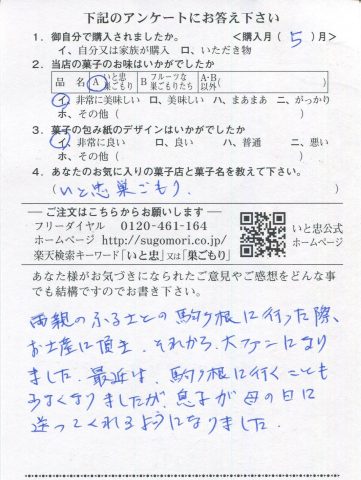 下記のアンケートにお答え下さい
1. 御自分で購入されましたか。 <購入月( 5 )月>
イ、自分又は家族が購入 ロ、いただき物
2. 当店の菓子のお味はいかがでしたか
品名 A いと忠巣ごもり B フルーツな巣ごもりたち A・B以外( )
イ、非常に美味しい ロ、美味しい ハ、まあまあ ニ、がっかり
ホ、その他( )
3. 菓子の包み紙のデザインはいかがでしたか
イ、非常に良い ロ、良い ハ、普通 ニ、悪い
ホ、その他( )
4. あなたのお気に入りの菓子店と菓子名を教えて下さい。
(いと忠巣ごもり. )
ご注文はこちらからお願いします
フリーダイヤル 0120-461-164
ホームページ http://sugomori.co.jp/
楽天検索キーワード「いと忠」又は「巣ごもり」
いと忠公式
ホームページ
あなた様がお気づきになられたご意見やご感想をどんな事
でも結構ですのでお書き下さい。
両親のふる土との駒ヶ根に行った際、
お土産に頂き、それから、大ファンになり
ました。最近は、駒ヶ根に行くことも
少なくなりましたが、息子が母の日に
送ってくれるようになりました。